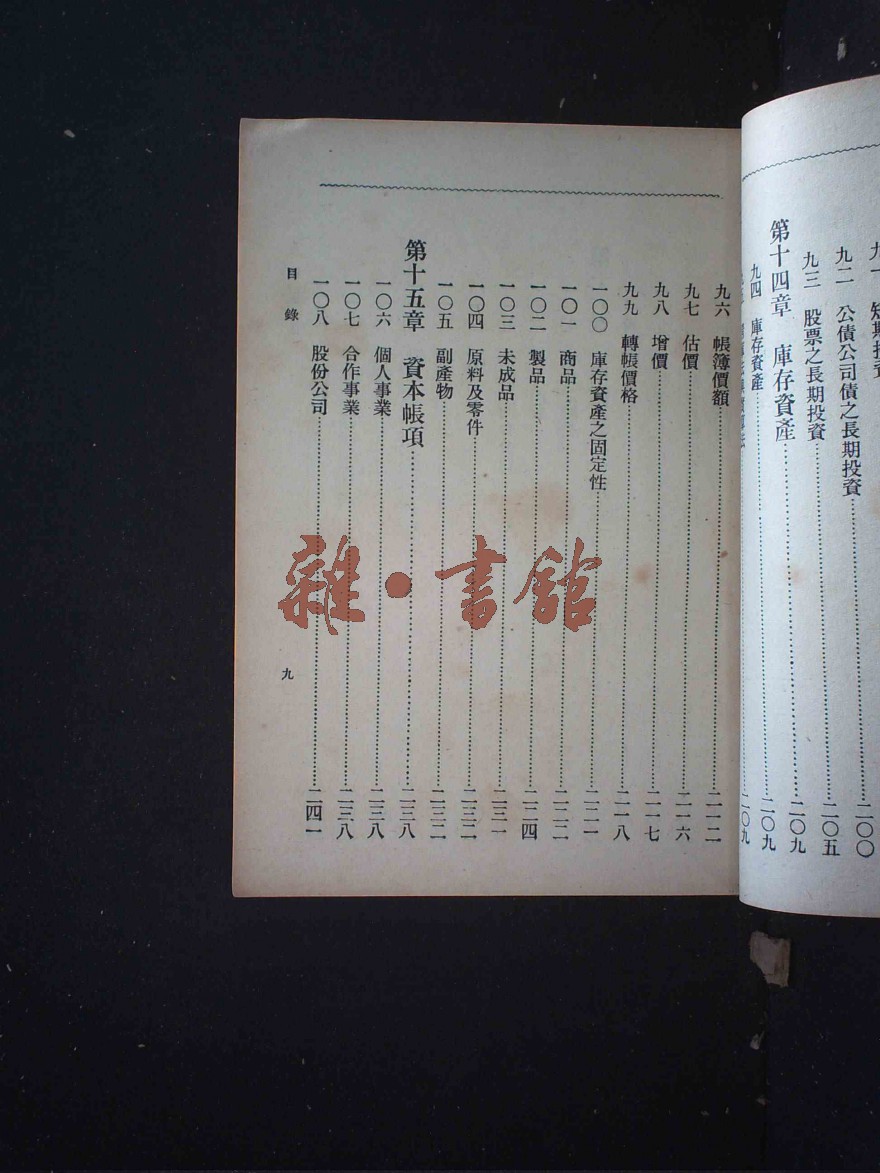 九二 公債公司債之長期投資……二〇〇
九三 股票之長期投資……二〇五
第十四章 庫存資產……二〇九
九四 庫存資產……二〇九
二〇九
九六 帳簿價額……二一二
九七 估價……二一六
九八 增價……二一七
九九 轉帳價格……二一八
一〇〇 庫存資產之固定性……二二一
一〇一 商品……二二二
一〇二 製品……二二四
一〇三 未成品……二三一
一〇四 原料及零件……二三二
一〇五 副產物……二三二
第十五章 資本帳項……二三八
一〇六 個人事業……二三八
一〇七 合作事業……二三八
一〇八 股份公司……二四一
目錄 九
雜·書館